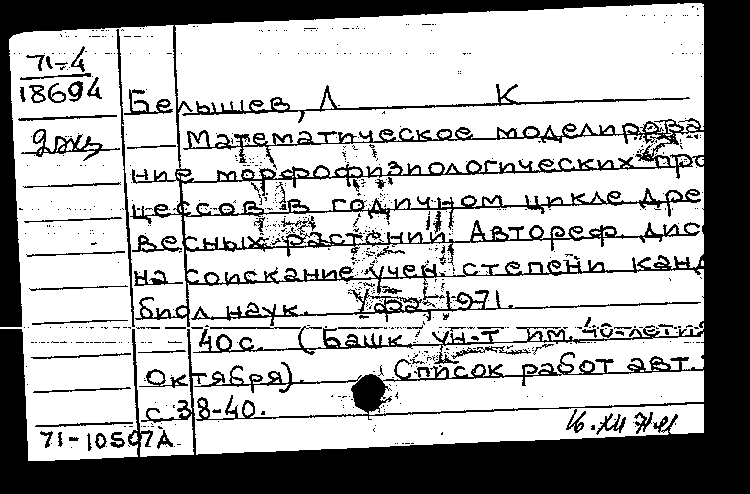 71-4
18694
2 экз
Белышев, Л К
Математическое моделирова
ние морфофизиологических про
цессов в годичном цикле дре
весных растений. Автореф. дисс
на соискание учен. степени канд
биол. наук. Уфа, 1971.
40 с. (Башк. ун-т им. 40-летия
Октября). Список работ авт.:
с. 38-40.
71-10507А